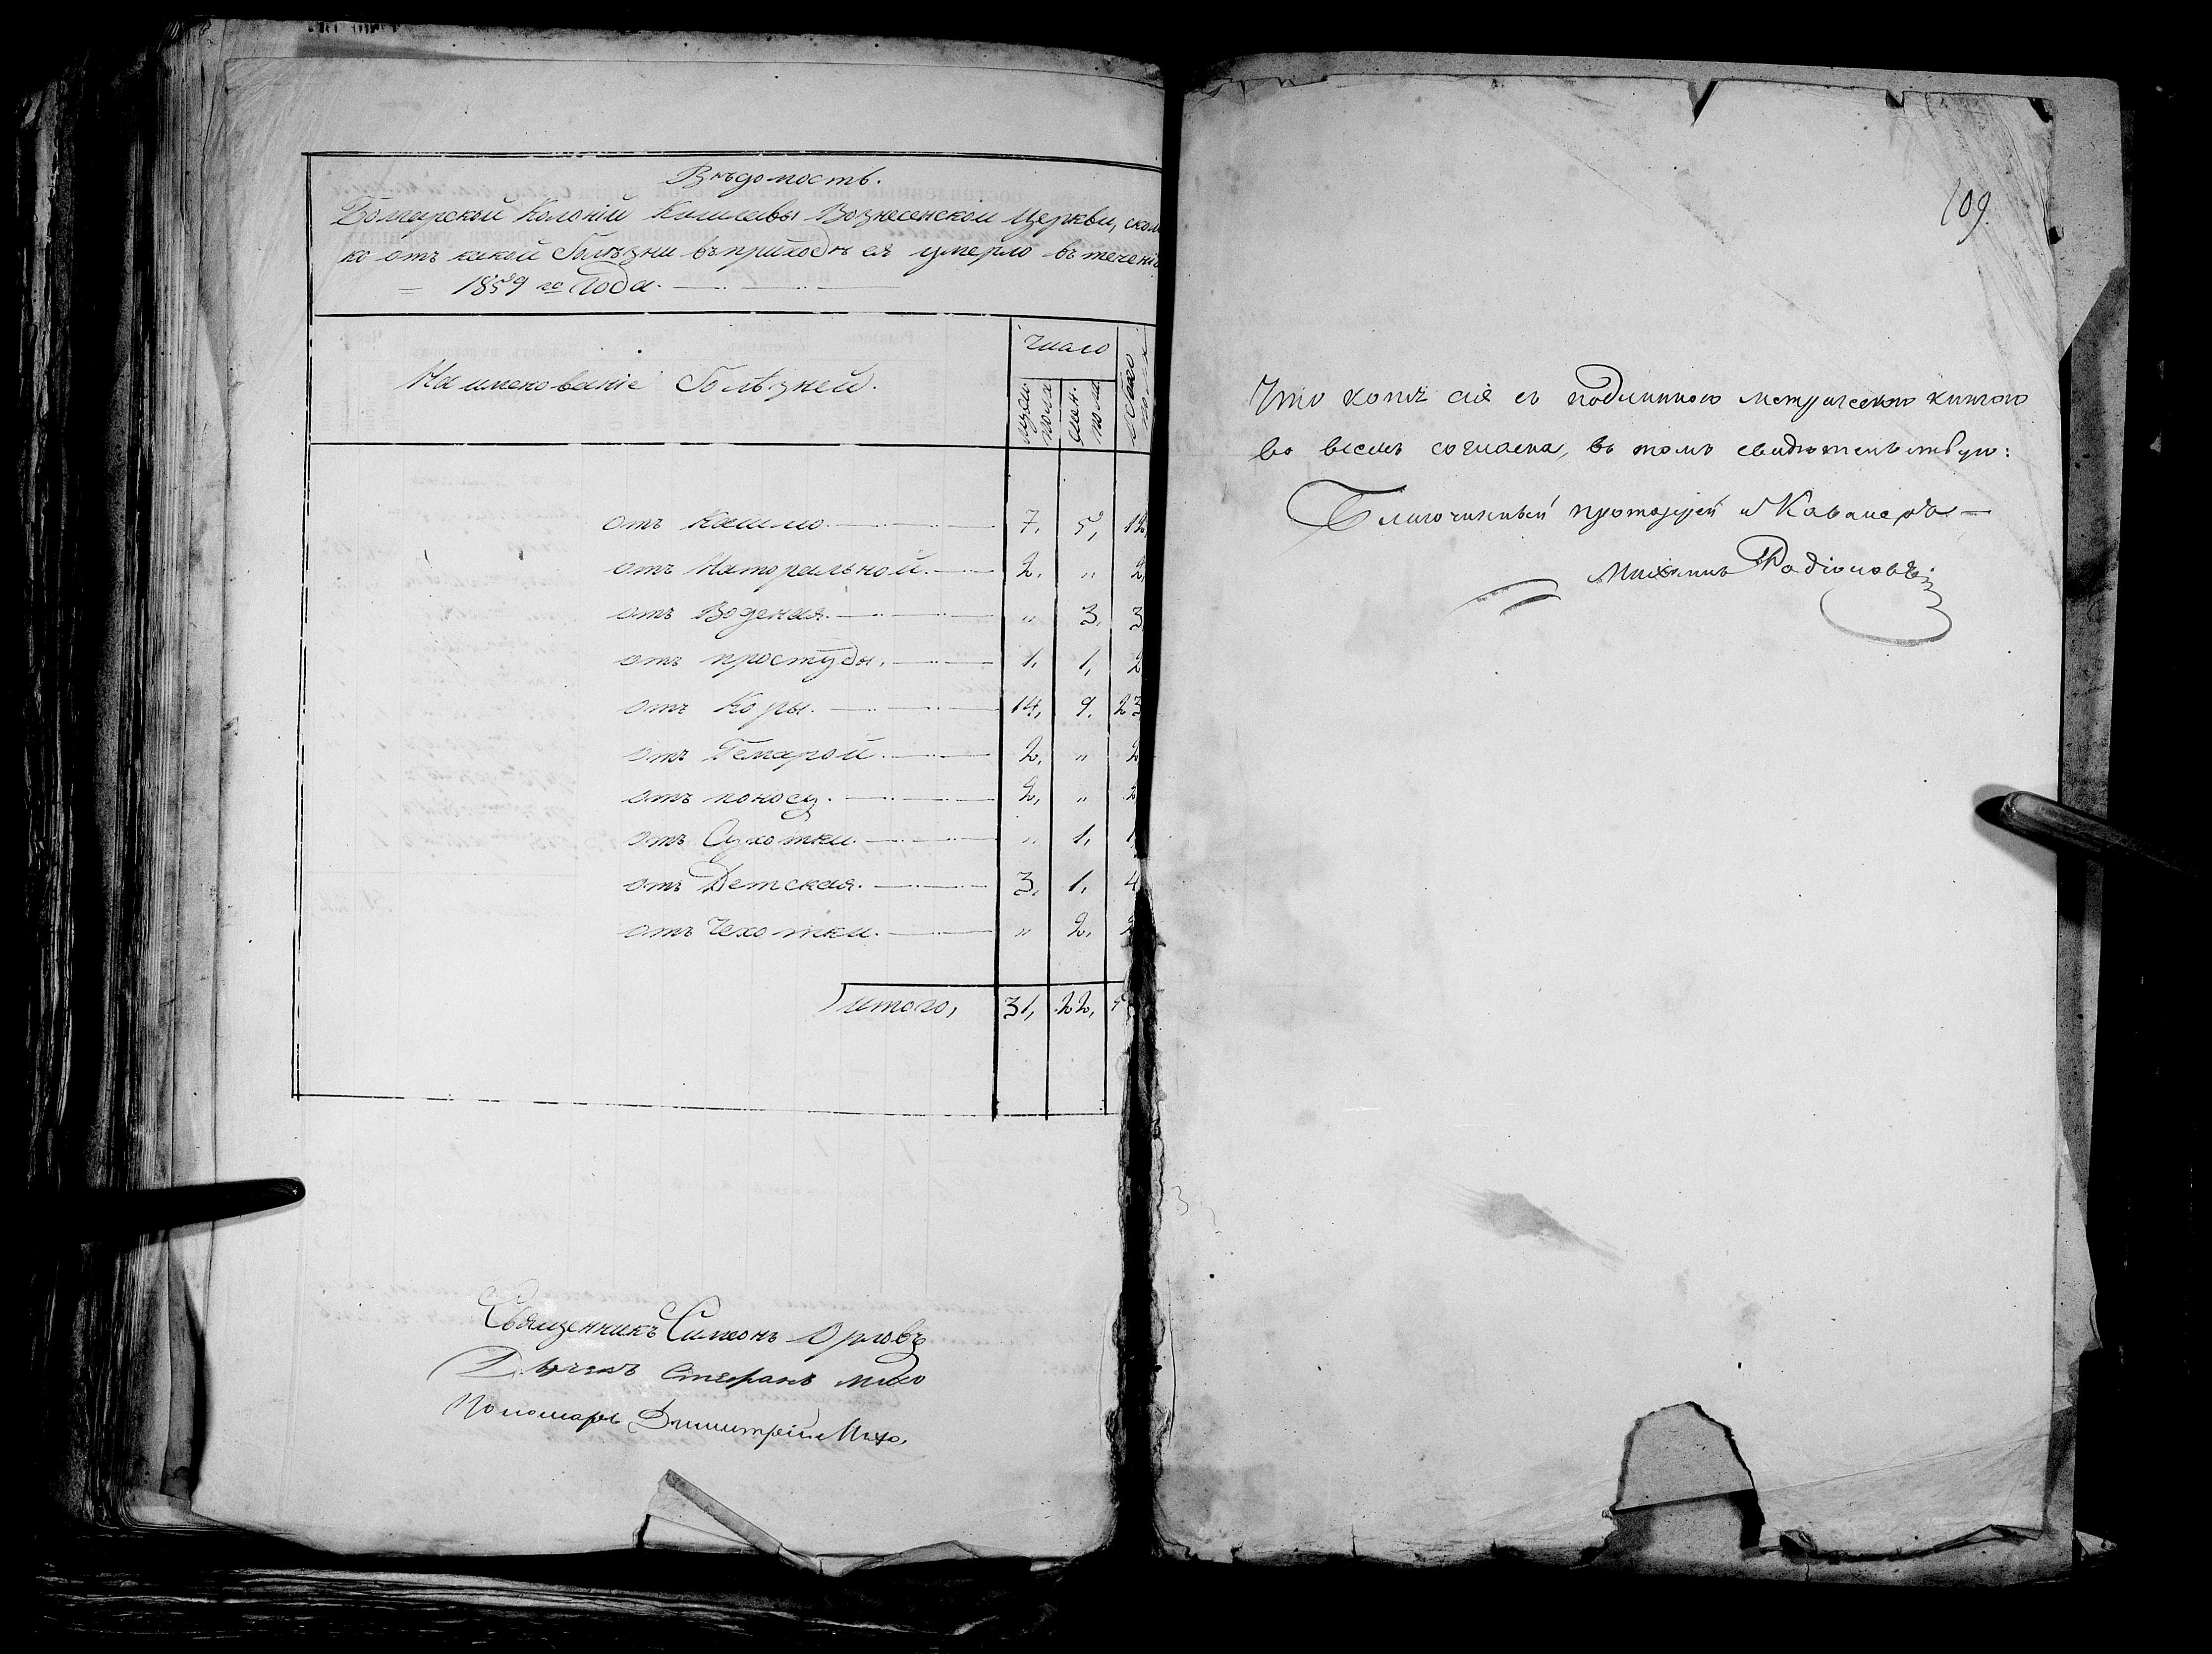 Вѣдомость.
Болгарской Колоніи Вознесенской Церкви, сколь
ко отъ какой болѣзни въ приходѣ ея умерло въ теченіе
1859 го Года.
Наименованіе Болѣзней.
Число
муж. пола
жен. пола
всего
отъ Кашлю. 7, 5, 12
отъ Натуральной. 2, „ 2,
отъ Водяная. „ 3, 3,
отъ простуды. 1, 1, 2
отъ Коры. 14, 9, 23
отъ 2, „ 2
отъ поносу. 2, „ 2
отъ Сухотки. „ 1, 1,
отъ Детская. 3, 1, 4
отъ Чехотки. „ 2, 2
итого, 31, 22, 5
Священникъ Симеонъ Орловъ
Дьячекъ Стефанъ
Пономарь Димитрій
109.
Что копія сія съ подлинною метрическою книгою
во всемъ согласна, въ томъ свидѣтельствую:
Благочинный протоіерей и Кавалеръ
Михаилъ Родіоновъ